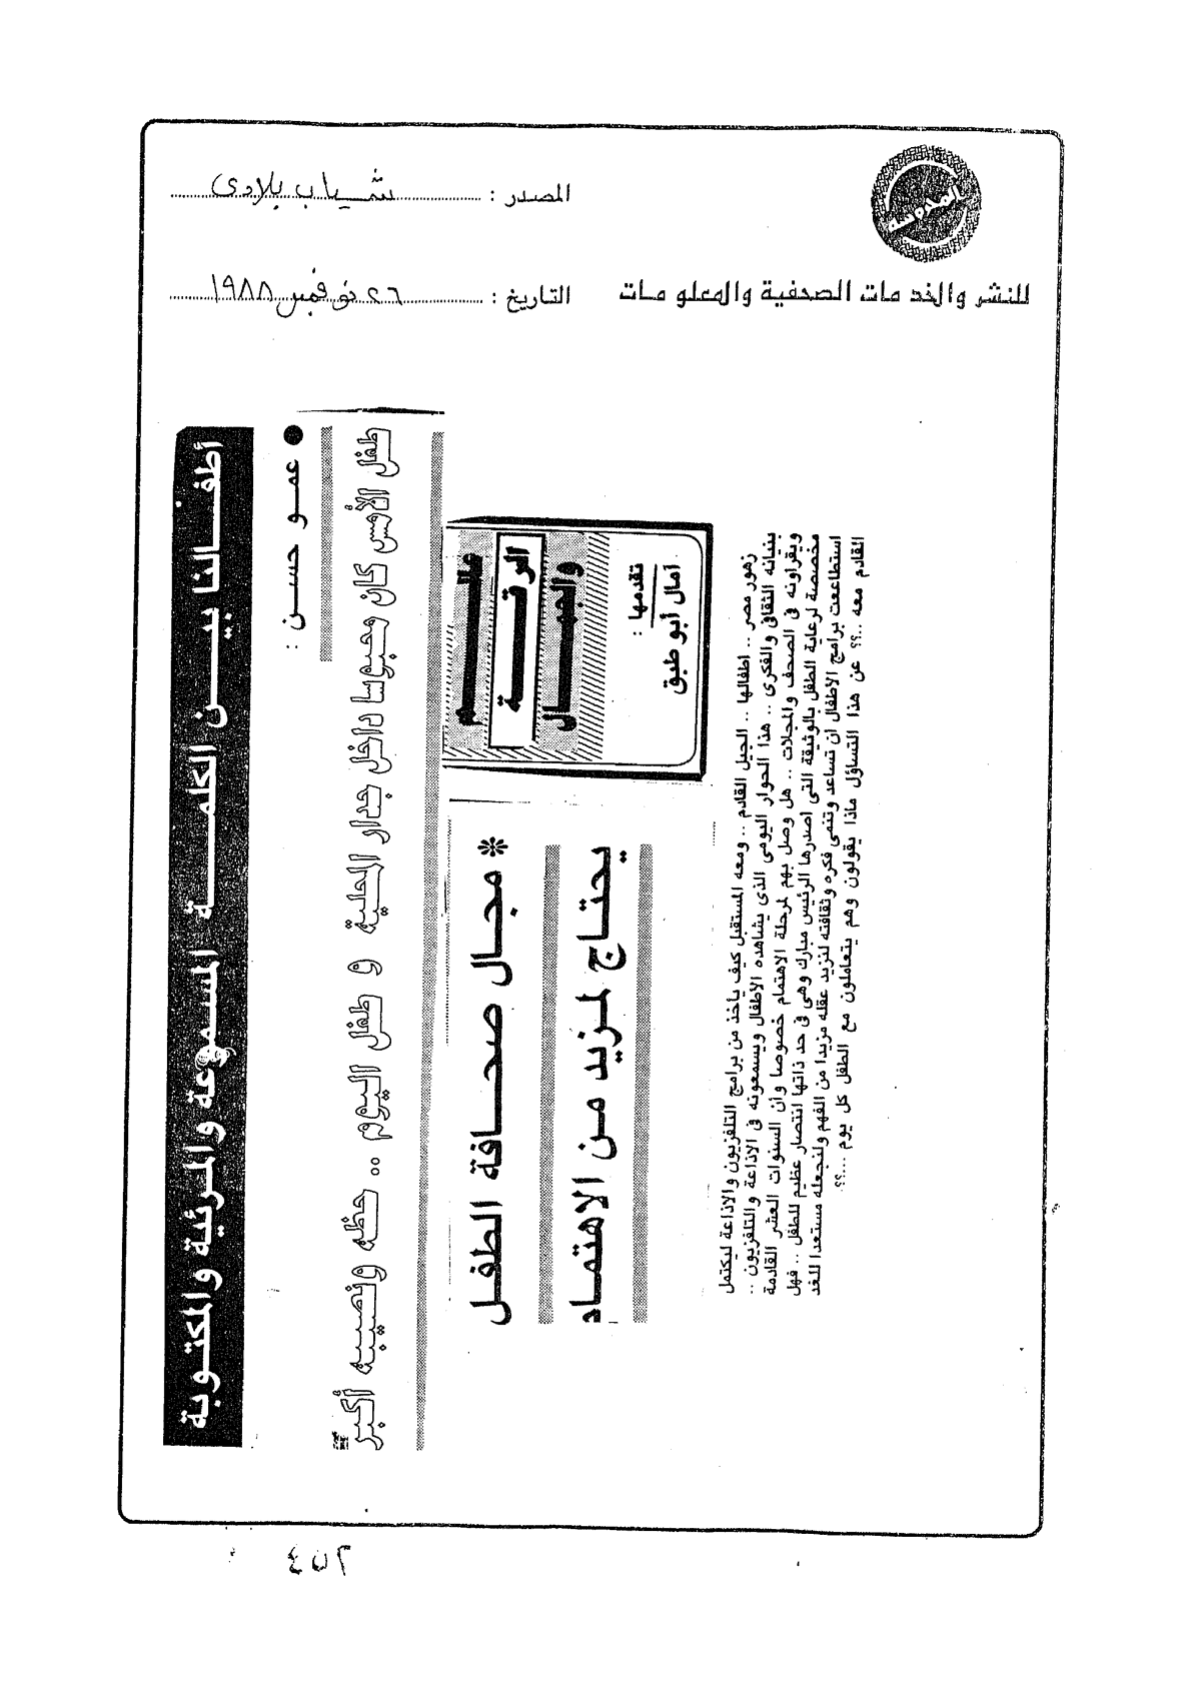 المصدر : شباب بلادى
للنشر والخدمات الصحفية والمعلومات
التاريخ : ٢٦ نوفمبر ١٩٨٨
أطفالنا بين الكلمة المسموعة والمرئية والمكتوبة
● عمو حسن :
طفل الأمس كان محبوسا داخل جدار المحلية و طفل اليوم .. حظه ونصيبه أكبر
عالم
الرقة
والجمال
تقدمها :
آمال أبو طبق
* مجال صحافة الطفل
يحتاج لمزيد من الاهتمام
زهور مصر .. اطفالها .. الجيل القادم .. ومعه المستقبل كيف ياخذ من برامج التلفزيون والاذاعة ليكتمل
بنيانه الثقافى والفكرى .. هذا الحوار اليومى الذى يشاهده الاطفال ويسمعونه فى الاذاعة والتلفزيون ..
ويقراونه فى الصحف والمجلات .. هل وصل بهم لمرحلة الاهتمام خصوصا وان السنوات العشر القادمة
مخصصة لرعاية الطفل بالوثيقة التى اصدرها الرئيس مبارك وهى فى حد ذاتها انتصار عظيم للطفل .. فهل
استطاعت برامج الاطفال ان تساعد وتنمى فكره وثقافته لنزيد عقله مزيدا من الفهم ولنجعله مستعدا للغد
القادم معه ..؟؟ عن هذا التساؤل ماذا يقولون وهم يتعاملون مع الطفل كل يوم ...؟؟
٦٥٤